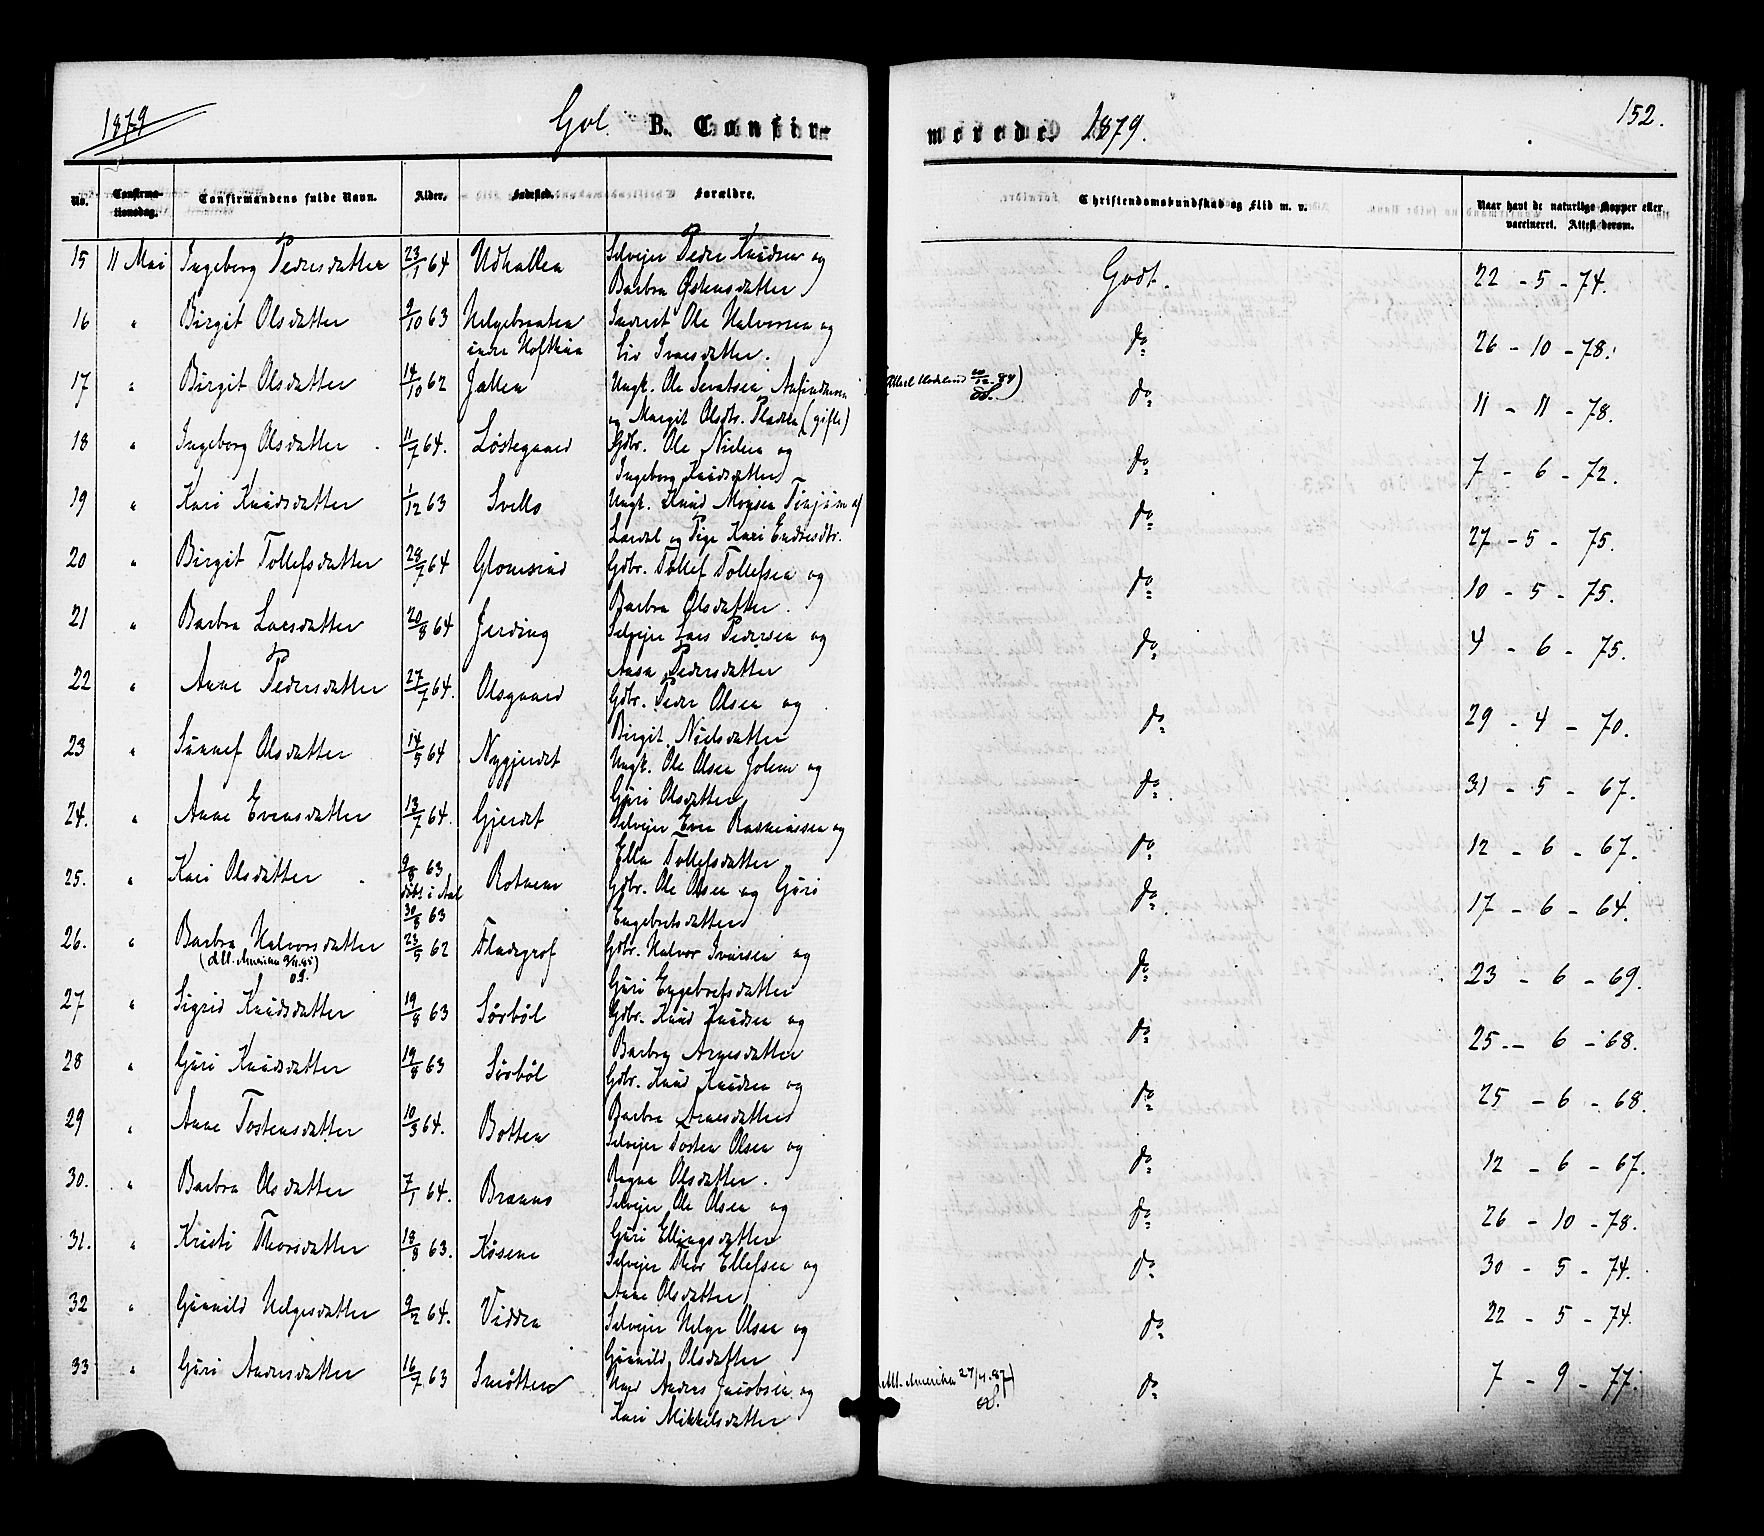 1879 Gol. B. Confirmerede. 1879. 152.
No. Confirmationsdag. Confirmandens fulde Navn. Alder. Fødested. Forældre. Christendomskundskab og Flid m. v. Naar havt de naturlige Kopper eller vaccineret. Attest derom.
15 11 Mai Ingeborg Pedersdatter 23/1 64 Udhallen Selveier Peder Knudsen og Godt. 22 - 5 - 74.
Barbra Østensdatter
16 " Birgit Olsdatter 9/10 63 Helgebraaten Inderst Ole Halvorsen og do 26 - 10 - 78.
indre Hofthun Liv Ivarsdatter.
17 " Birgit Olsdatter 14/10 62 Jallen Ungk. Ole Sevatsen do 11 - 11 - 78.
og Margit Olsdtr. (gifte)
18 " Ingeborg Olsdatter 11/7 64. Løstegaard Gdbr. Ole Nielsen og do 7 - 6 - 72.
Ingeborg Knudsdatter
19 " Kari Knudsdatter 1/12 63 Svello Ungk. Knud Monsen Tønjum af do 27 - 5 - 75.
Lærdal og Pige Kari Endresdtr.
20 " Birgit Tollefsdatter 28/7 64 Glomsrud Gdbr. Tollef Tollefsen og do 10 - 5 - 75.
Barbra Olsdatter.
21 " Barbra Larsdatter 20/8 64 Jerding Selveier Lars Pedersen og do 4 - 6 - 75.
Aasa Pedersdatter
22 " Anne Pedersdatter 27/7 64. Olsgaard Gdbr. Peder Olsen og do 29 - 4 - 70.
Birgit Nielsdatter
23 " Sünnef Olsdatter 14/5 64 Nygjerdet Ungk. Ole Olsen Golen og do 31 - 5 - 67.
Güri Olsdatter
24. " Anne Evensdatter 13/7 64. Gjerdet Selveier Even Rasmussen og do 12 - 6 - 67.
Ella Tollefsdatter
25. " Kari Olsdatter 9/8 63 Rotneim Gdbr. Ole Olsen og Güri do 17 - 6 - 64.
døbt i Aal
30/8 63 Engebretsdatter
26. " Barbra Halvorsdatter 23/5 62 Fladgrof Gdbr. Halvor Ivarsen og do 23 - 6 - 69.
Güri Engebretsdatter
27 " Sigrid Knudsdatter 19/8 63 Sørbøl Gdbr. Knud Knudsen og do 25. - 6 - 68.
Barbra Arnesdatter
28 " Güri Knudsdatter 19/8 63 Sørbøl Gdbr. Knud Knudsen og do 25 - 6 - 68.
Barbra Arnesdatter
29 " Anne Tostensdatter 10/3 64. Botten Selveier Tosten Olsen og do 12 - 6 - 67.
Ragna Olsdatter.
30. " Barbra Olsdatter 7/1 64. Braunes Selveier Ole Olsen og do 26 - 10 - 78.
Güri Ellingsdatter
31. " Kristi Thorsdatter 18/8 63. Køsene Selveier Thor Ellefsen og do 30 - 5 - 74.
Anne Olsdatter
32 " Gunnild Helgesdatter 9/2 64. Viddra Selveier Helge Olsen og do 22 - 5 - 74.
Gunnild Olsdatter
33 " Güri Andersdatter 16/7 63 Smøtten Anders Jacobsen og do 7 - 9 - 77.
Kari Mikkelsdatter